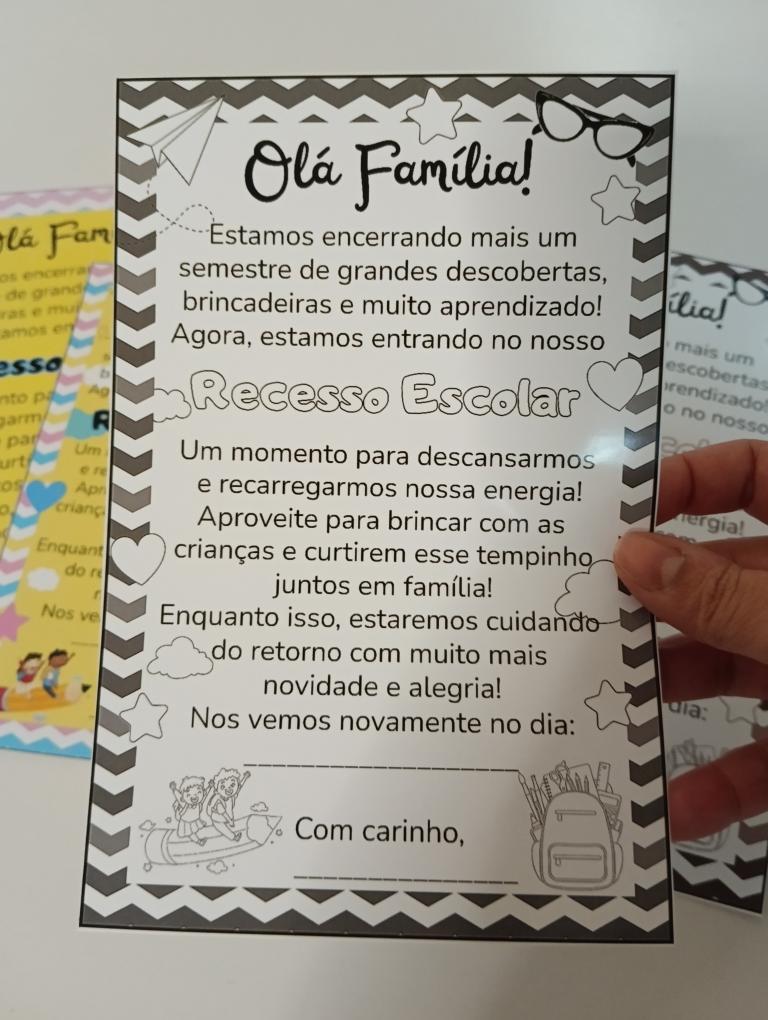 Olá Família!
Estamos encerrando mais um
semestre de grandes descobertas,
brincadeiras e muito aprendizado!
Agora, estamos entrando no nosso
Recesso Escolar
Um momento para descansarmos
e recarregarmos nossa energia!
Aproveite para brincar com as
crianças e curtirem esse tempinho
juntos em família!
Enquanto isso, estaremos cuidando
do retorno com muito mais
novidade e alegria!
Nos vemos novamente no dia:
Com carinho,